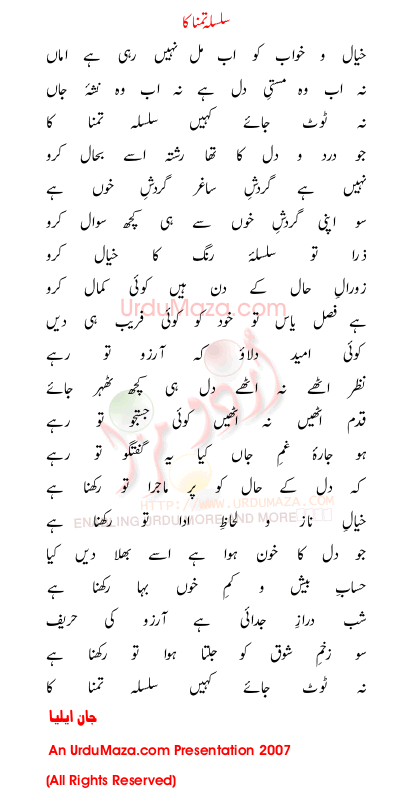 سلسلہ تمنا کا
خیال و خواب کو اب مل نہیں رہی ہے اماں
نہ اب وہ مستیِ دل ہے نہ اب وہ نشۂ جاں
نہ ٹوٹ جائے کہیں سلسلہ تمنا کا
جو درد و دل کا تھا رشتہ اسے بحال کرو
نہیں ہے گردشِ ساغر گردشِ خوں ہے
سو اپنی گردشِ خوں سے ہی کچھ سوال کرو
ذرا تو سلسلۂ رنگ کا خیال کرو
زورالِ حال کے دن ہیں کوئی کمال کرو
UrduMaza.com
ہے فصل یاس تو خود کو کوئی فریب ہی دیں
کوئی امید دلاؤ کہ آرزو تو رہے
نظر اٹھے نہ اٹھے دل ہی کچھ ٹھہر جائے
قدم اٹھیں نہ اٹھیں کوئی جستجو تو رہے
ہو جارۂ غمِ جاں کیا یہ گفتگو تو رہے
کہ دل کے حال کو پر ماجرا تو رکھنا ہے
HTTP://WWW.URDUMAZA.COM
خیالِ ناز و لحاظِ ادا تو رکھنا ہے
ENABLING URDU MORE AND MORE
جو دل کا خون ہوا ہے اسے بھلا دیں کیا
حساب بیش و کمِ خوں بہا رکھنا ہے
شب درازِ جدائی ہے آرزو کی حریف
سو زخمِ شوق کو جلتا ہوا تو رکھنا ہے
نہ ٹوٹ جائے کہیں سلسلہ تمنا کا
جان ایلیا
An UrduMaza.com Presentation 2007
(All Rights Reserved)